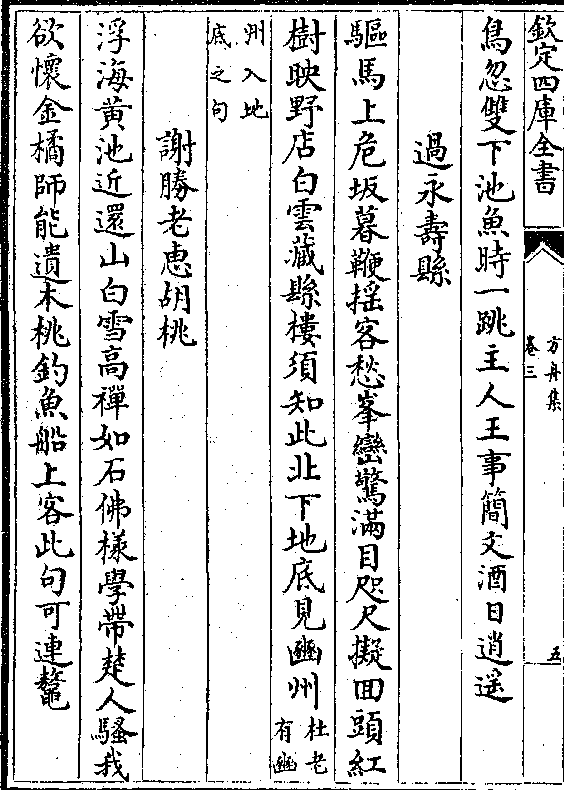 欽定四庫全書
方舟集
卷三
五
鳥忽雙下池魚時一跳主人王事簡文酒日逍遥
過永壽縣
驅馬上危坂暮鞭揺客愁峯巒驚滿目咫尺擬回頭紅
樹映野店白雲藏縣樓須知此北下地底見豳州杜老
有豳
州入地
底之句
謝勝老恵胡桃
浮海黄池近還山白雪高禪如石佛樣學帶楚人騷我
欲懷金橘師能遺木桃釣魚船上客此句可連鼇